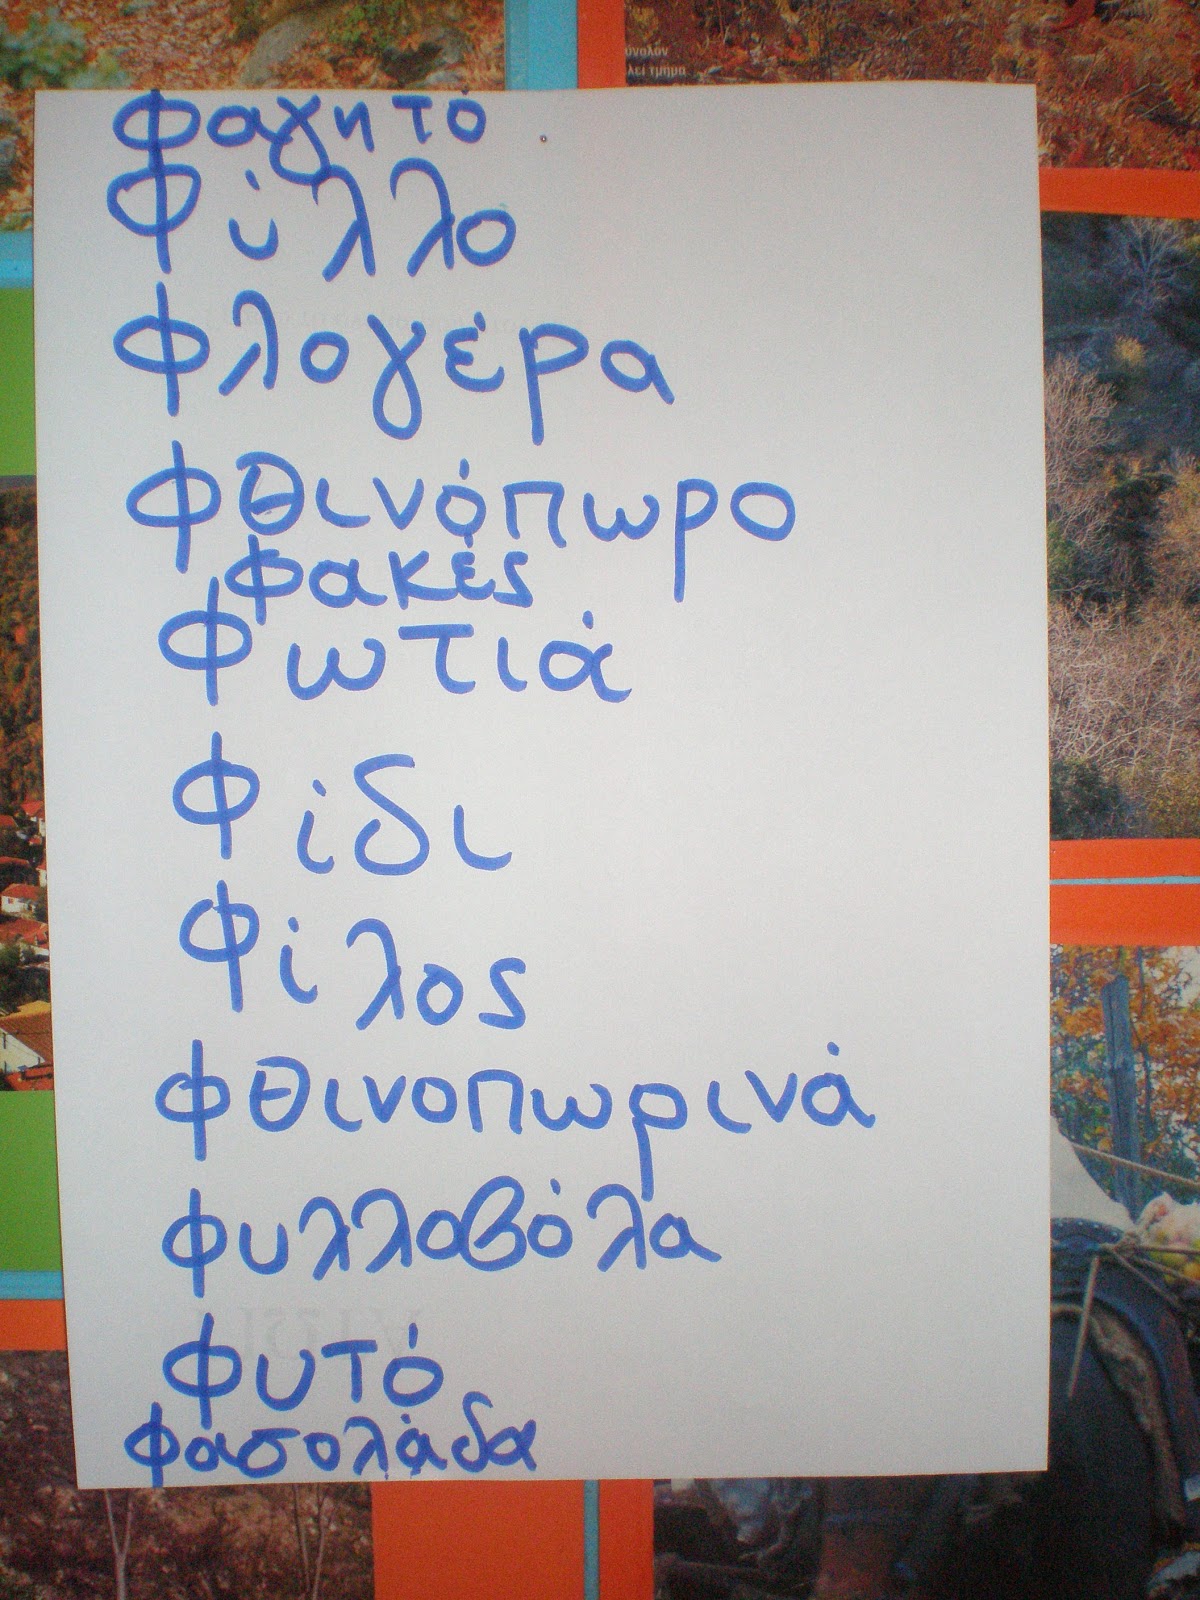 υναλόν
λει τμήμα
φαγητό
Φύλλο
Φλογέρα
Φθινόπωρο
Φακές
Φωτιά
Φίδι
Φίλος
φθινοπωρινά
φυλλοβόλα
Φυτό
φασολάδα